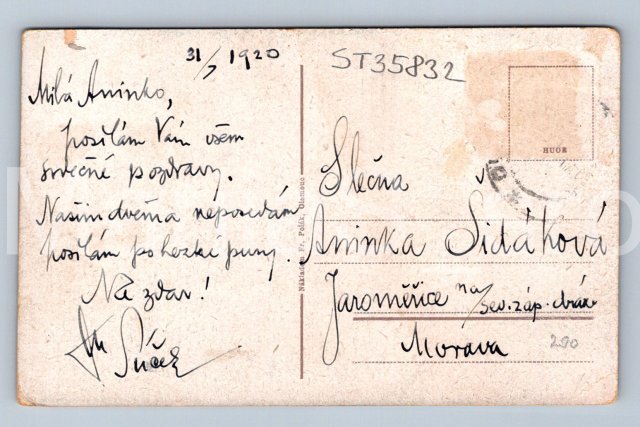 31/7 1920
ST35832
Milá Aninko,
posílám Vám všem
srdečné pozdravy.
Našim dvěma neposedám
posílám po hezké pusy.
Na zdar!
Súček
Nákladem Fr. Polák, Olomouc
HUOR
Slečna
Aninka Sidáková
Jaroměřice na/
sev. záp. dráze
Morava
290